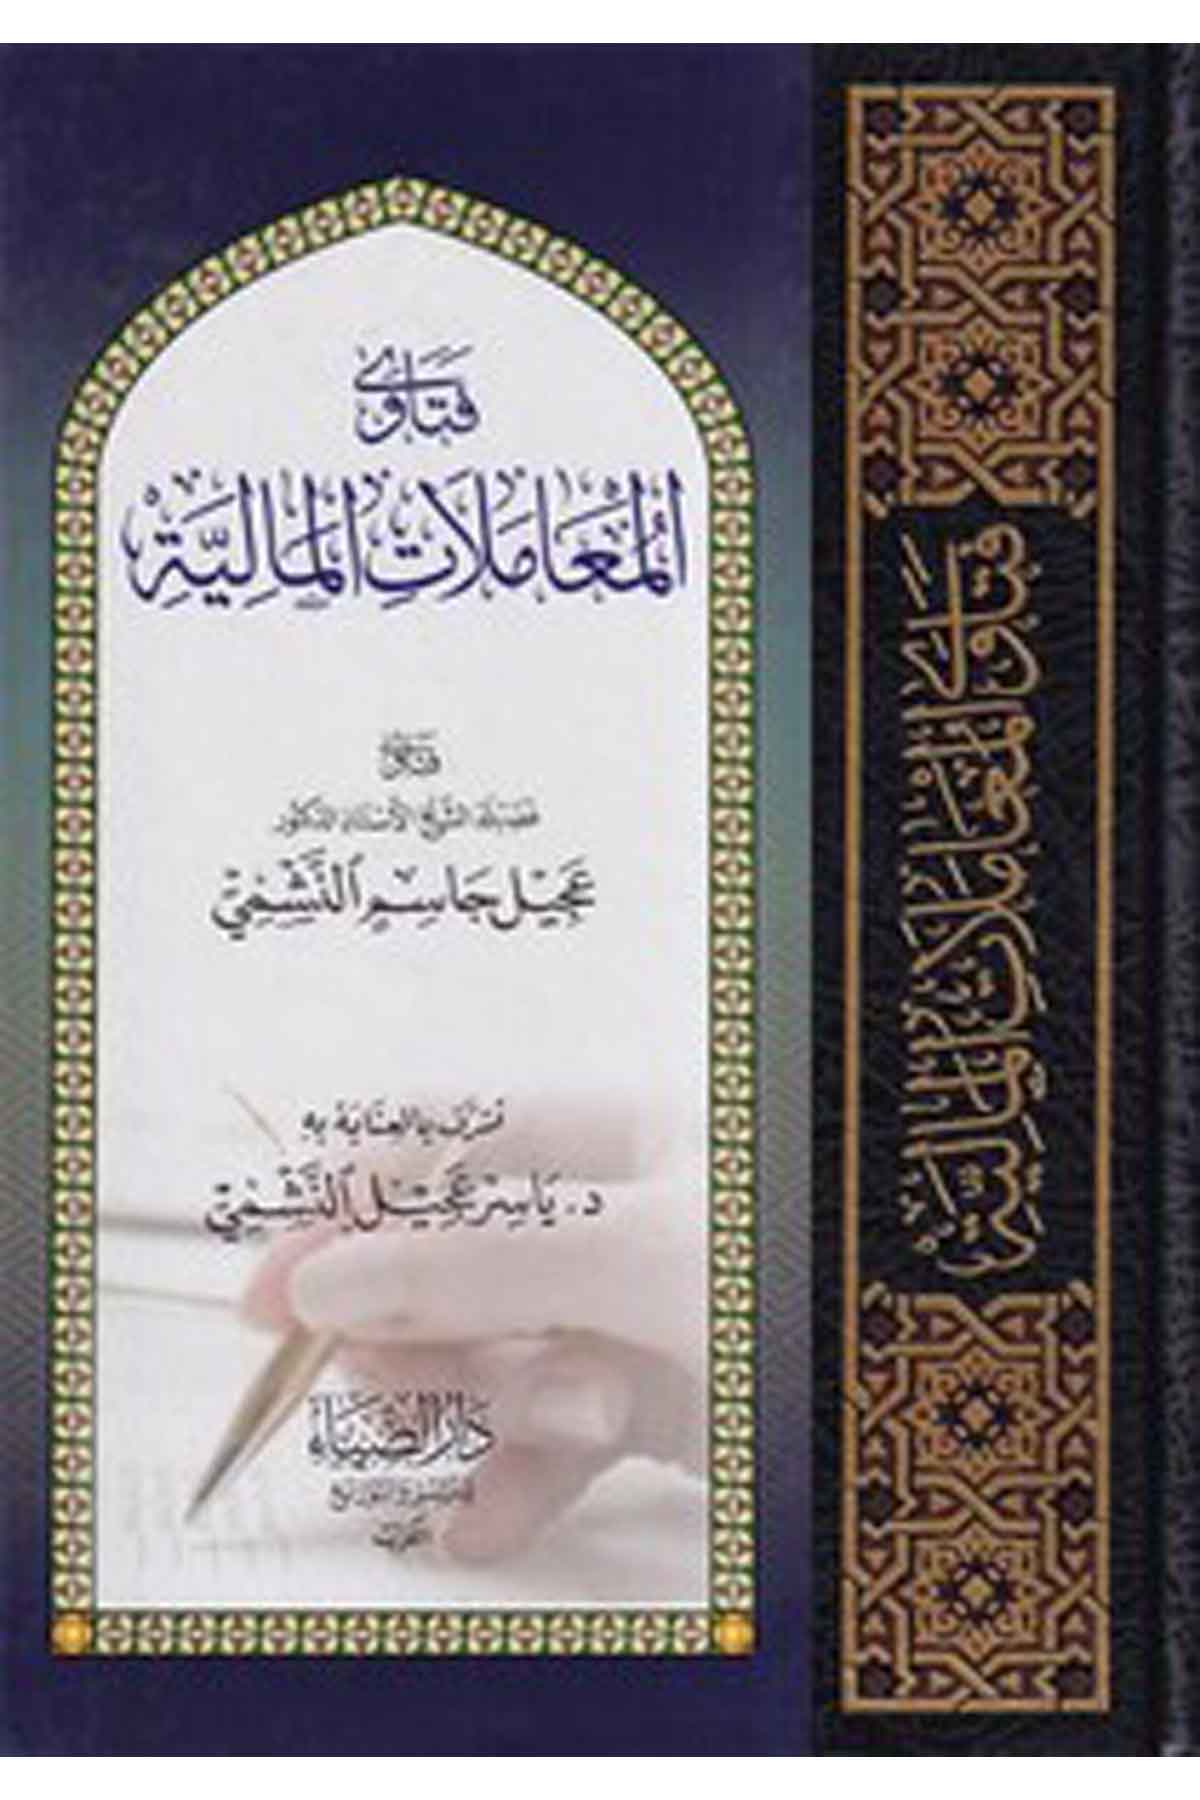 فَتَاوَى
المُعَامَلَاتِ المَالِيَّةِ
فتاوى
فضيلة الشيخ الأستاذ الدكتور
عَجِيل جَاسِم النَّشْمِيّ
تشرف بالعناية به
د. يَاسِر عَجِيل النَّشْمِيّ
دَارُ الضِّيَاء
للنشر والتوزيع
الكويت
فَتَاوَى المُعَامَلَاتِ المَالِيَّةِ